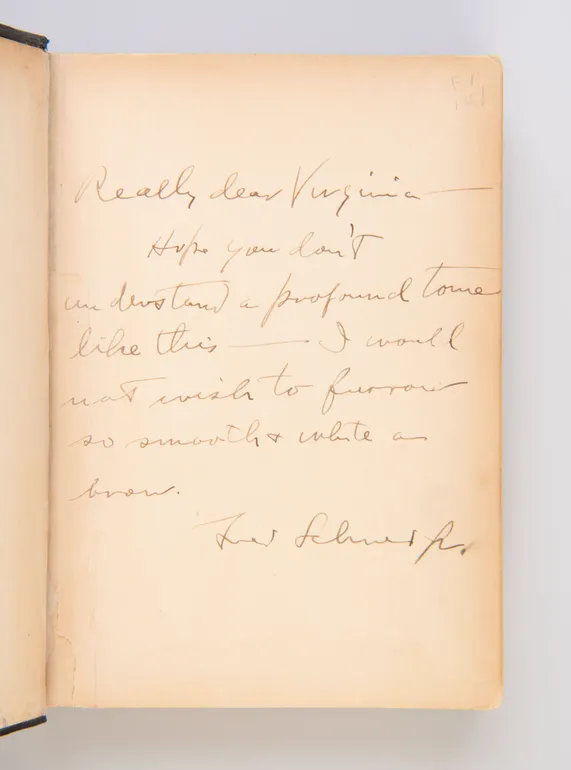 Really dear Virginia —
Hope you don't
understand a profound tome
like this — I would
not wish to furrow
so smooth & white a
brow.
Fred Schwed Jr.